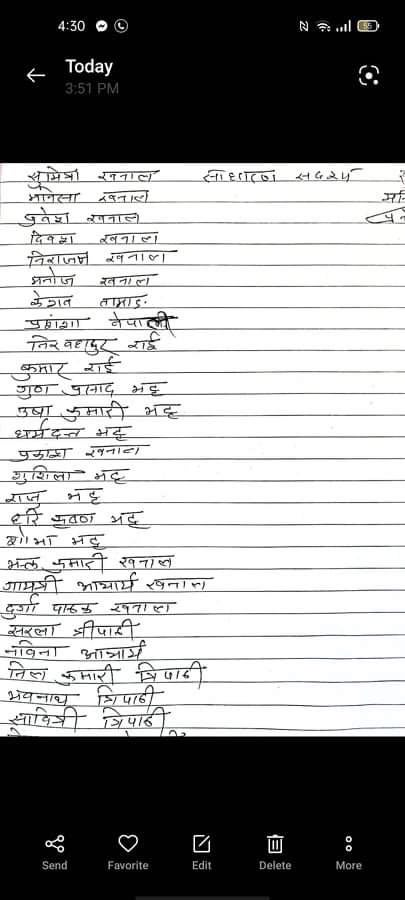 4:30
55
Today
3:51 PM
सुमित्रा खनाल साधारण सदस्य
मनिसा खनाल
प्रवेश खनाल
दिवश खनाल
निराजन खनाल
मनोज खनाल
केशव तामाङ
प्रशंशा नेपाली
निरबहादुर राई
कुमार राई
गुण प्रसाद भट्ट
उषा कुमारी भट्ट
धर्मदत्त भट्ट
प्रकाश खनाल
सुशिला भट्ट
राजु भट्ट
हरि कृष्ण भट्ट
शोभा भट्ट
कुमारी खनाल
गायत्री आचार्य खनाल
दुर्गा पाठक खनाल
सरला त्रीपाठी
नविना आचार्य
निल कुमारी त्रिपाठी
भवनाथ त्रिपाठी
सावित्री त्रिपाठी
Send Favorite Edit Delete More